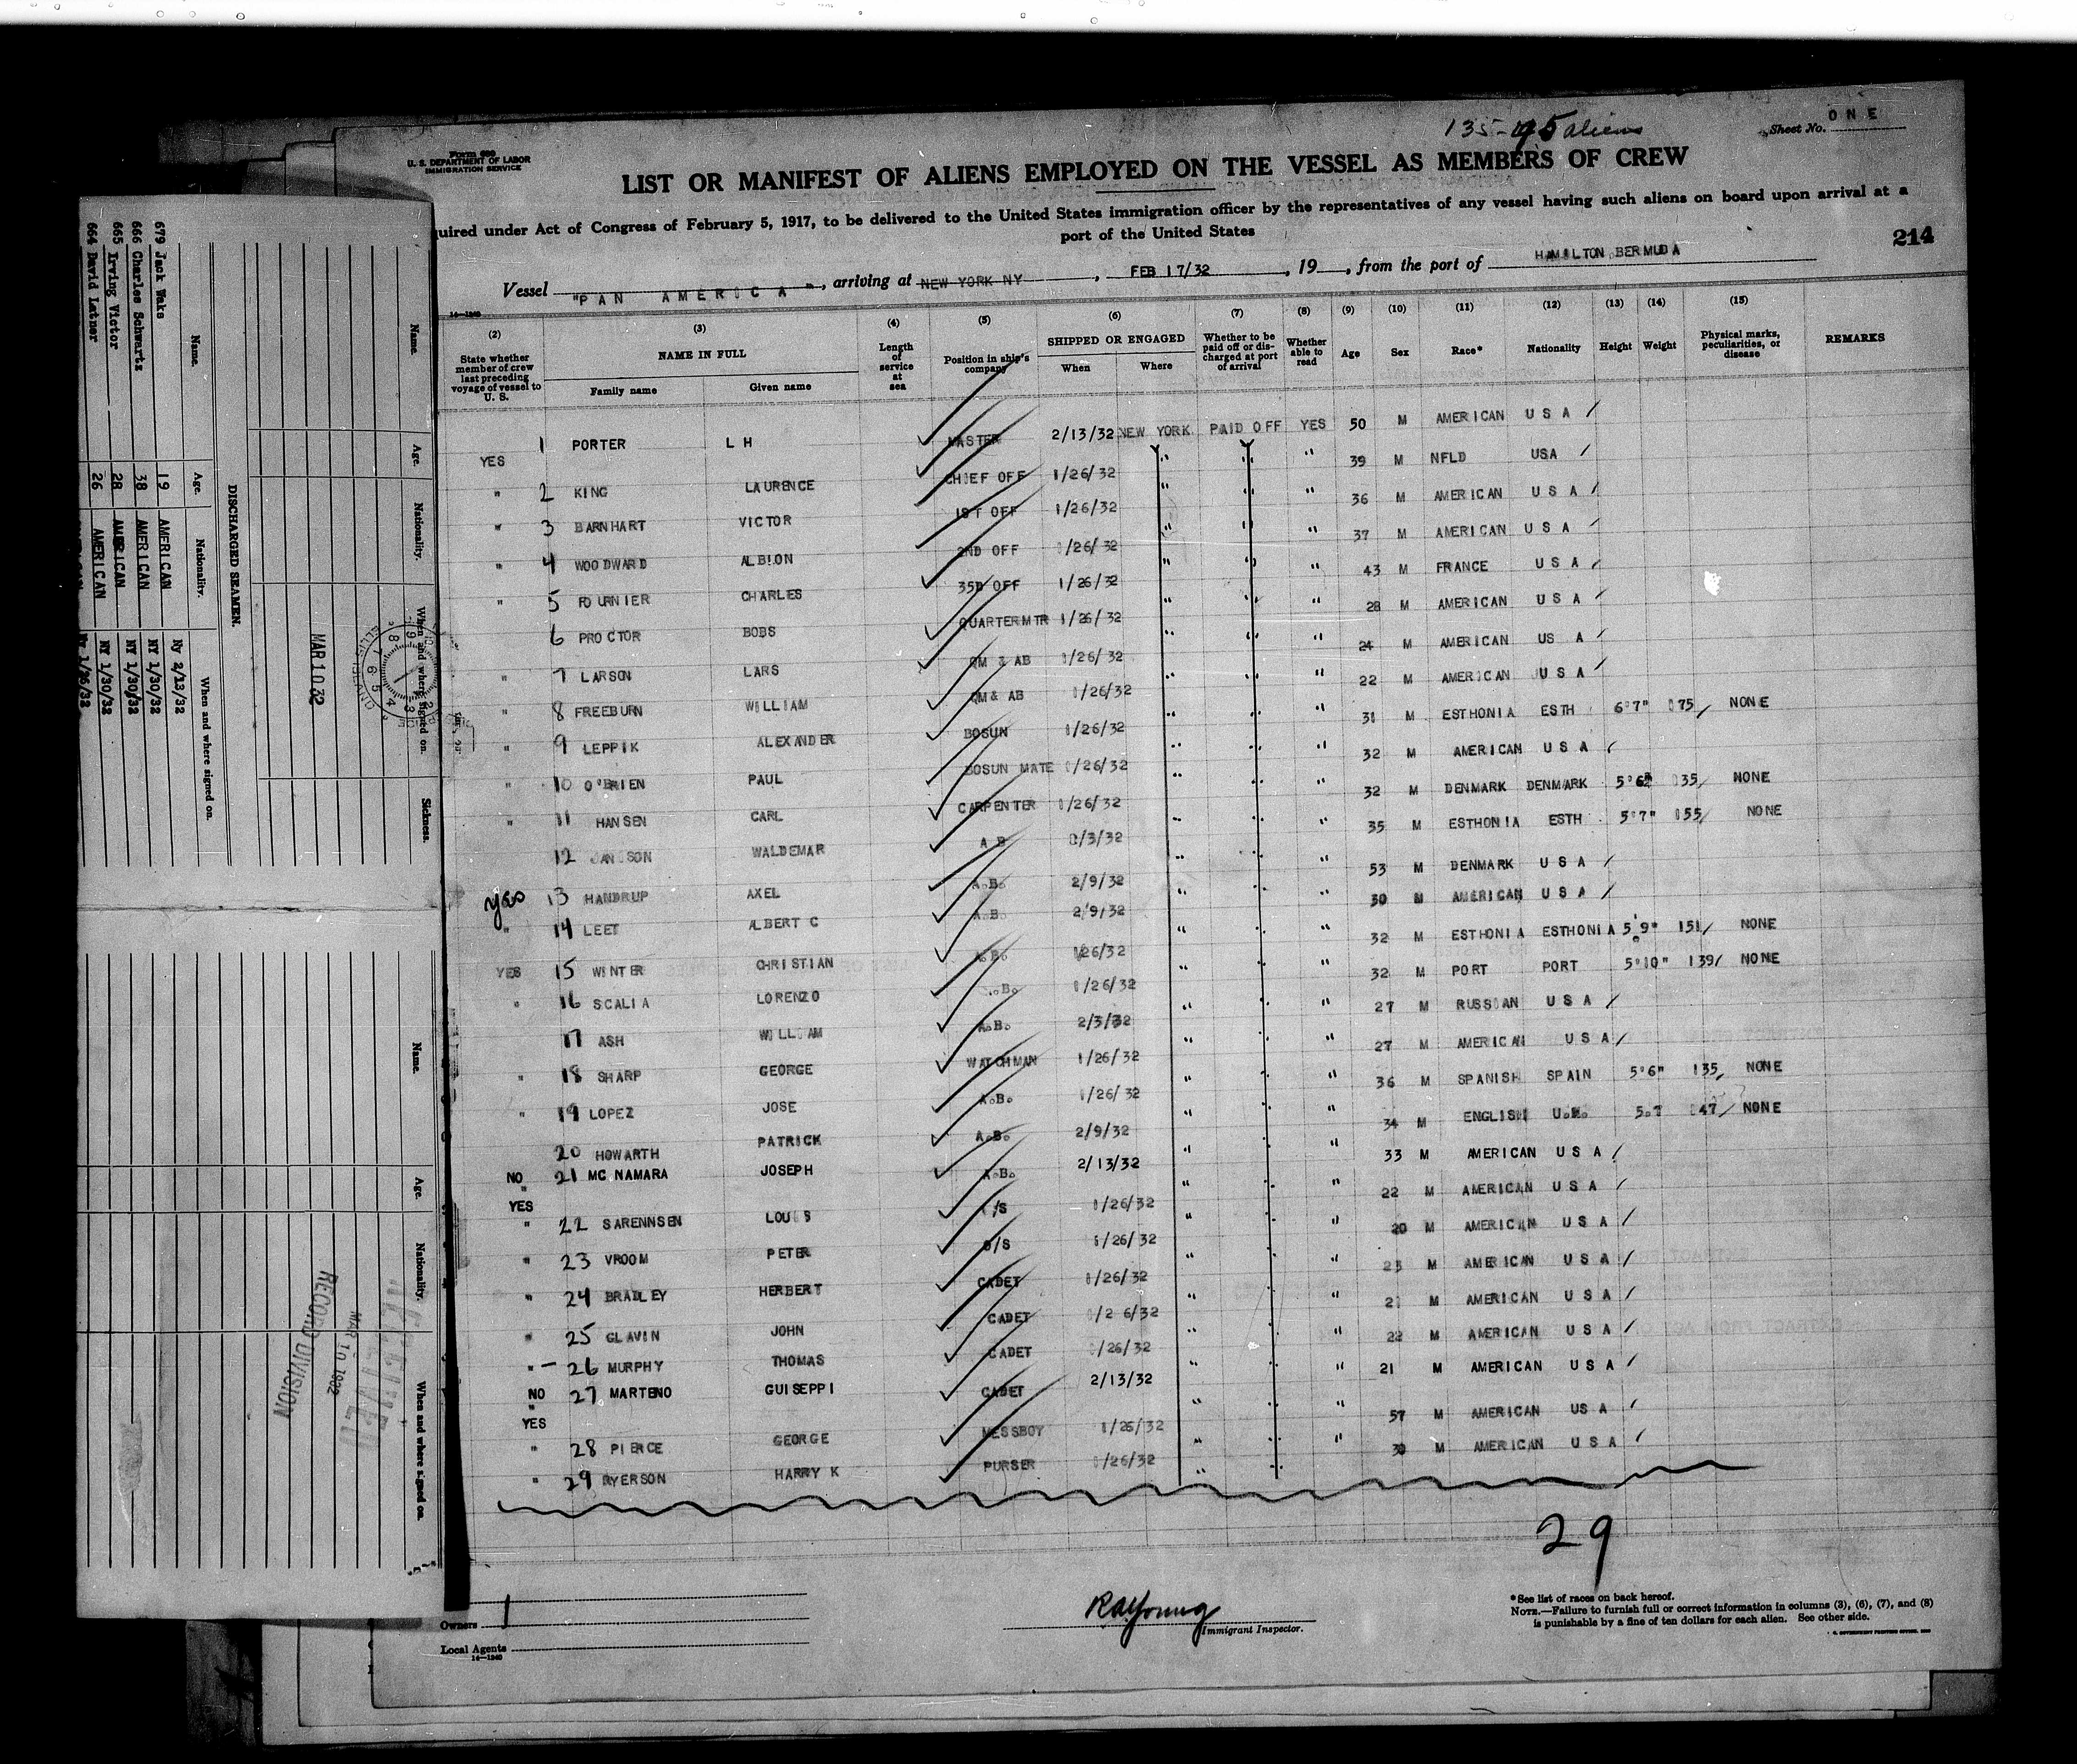 135-95 aliens
Sheet No. ONE
Form 680
U. S. DEPARTMENT OF LABOR
IMMIGRATION SERVICE
LIST OR MANIFEST OF ALIENS EMPLOYED ON THE VESSEL AS MEMBERS OF CREW
quired under Act of Congress of February 5, 1917, to be delivered to the United States immigration officer by the representatives of any vessel having such aliens on board upon arrival at a
port of the United States
214
Vessel "PAN AMERICA", arriving at NEW YORK NY, FEB 17/32, 19__, from the port of HAMILTON BERMUDA
14—1240
(2) (3) (4) (5) (6) (7) (8) (9) (10) (11) (12) (13) (14) (15)
State whether member of crew last preceding voyage of vessel to U. S. NAME IN FULL Family name Given name Length of service at sea Position in ship's company SHIPPED OR ENGAGED When Where Whether to be paid off or discharged at port of arrival Whether able to read Age Sex Race* Nationality Height Weight Physical marks, peculiarities, or disease REMARKS
YES 1 PORTER L H MASTER 2/13/32 NEW YORK PAID OFF YES 50 M AMERICAN U S A
" 2 KING LAURENCE CHIEF OFF 1/26/32 " " " 39 M NFLD USA
" 3 BARNHART VICTOR 1ST OFF 1/26/32 " " " 36 M AMERICAN U S A
" 4 WOODWARD ALBION 2ND OFF 1/26/32 " " " 37 M AMERICAN U S A
" 5 FOURNIER CHARLES 35D OFF 1/26/32 " " " 43 M FRANCE U S A
6 PROCTOR BOBS QUARTERMTR 1/26/32 " " " 28 M AMERICAN U S A
" 7 LARSON LARS QM & AB 1/26/32 " " " 24 M AMERICAN US A
" 8 FREEBURN WILLIAM QM& AB 1/26/32 " " " 22 M AMERICAN U S A
" 9 LEPPIK ALEXANDER BOSUN 1/26/32 " " " 31 M ESTHONIA ESTH 6'7" 175 NONE
" 10 O'BRIEN PAUL BOSUN MATE 1/26/32 " " " 32 M AMERICAN U S A
" 11 HANSEN CARL CARPENTER 1/26/32 " " " 32 M DENMARK DENMARK 5'6" 135 NONE
12 WALDEMAR A B 2/3/32 " " " 35 M ESTHONIA ESTH 5'7" 155 NONE
yes 13 HANDRUP AXEL A.B. 2/9/32 " " " 53 M DENMARK U S A
" 14 LEET ALBERT C A.B. 2/9/32 " " " 30 M AMERICAN U S A
YES 15 WINTER CHRISTIAN A.B. 1/26/32 " " " 32 M ESTHONIA ESTHONIA 5'9" 151 NONE
" 16 SCALIA LORENZO A.B. 1/26/32 " " " 32 M PORT PORT 5'10" 139 NONE
17 ASH WILLIAM A.B. 2/3/32 " " " 27 M RUSSIAN U S A
" 18 SHARP GEORGE WATCHMAN 1/26/32 " " " 27 M AMERICAN U S A
" 19 LOPEZ JOSE A.B. 1/26/32 " " " 36 M SPANISH SPAIN 5'6" 135 NONE
20 HOWARTH PATRICK A.B. 2/9/32 " " " 34 M ENGLISH 5.7 147 NONE
NO 21 MC NAMARA JOSEPH A.B. 2/13/32 " " " 33 M AMERICAN U S A
YES
" 22 SARENNSEN LOUIS /S 1/26/32 " " " 22 M AMERICAN U S A
" 23 VROOM PETER O/S 1/26/32 " " " 20 M AMERICAN U S A
" 24 BRADLEY HERBERT CADET 1/26/32 " " " 23 M AMERICAN U S A
" 25 GLAVIN JOHN CADET 1/26/32 " " " 21 M AMERICAN U S A
" — 26 MURPHY THOMAS CADET 1/26/32 " " " 22 M AMERICAN U S A
NO 27 MARTENO GUISEPPI CADET 2/13/32 " " " 21 M AMERICAN U S A
YES
" 28 PIERCE GEORGE MESSBOY 1/26/32 " " " 57 M AMERICAN US A
" 29 RYERSON HARRY K PURSER 1/26/32 " " " M AMERICAN U S A
29
Owners
Local Agents
14—1240
RAYoung
Immigrant Inspector.
*See list of races on back hereof.
NOTE.—Failure to furnish full or correct information in columns (3), (6), (7), and (8)
is punishable by a fine of ten dollars for each alien. See other side.
Name. Age. Nationality. When and where signed on. Sickness.
MAR 10 32
DISCHARGED SEAMEN.
Name. Age. Nationality. When and where signed on.
679 Jack Waks 19 AMERICAN Ny 2/13/32
666 Charles Schwartz 38 AMERICAN NY 1/30/32
665 Irving Victor 28 AMERICAN NY 1/30/32
664 David Latner 26 AMERICAN NY 1/30/32
Name. Age. Nationality. When and where signed on.
RECEIVED
MAR 10 1932
RECORD DIVISION